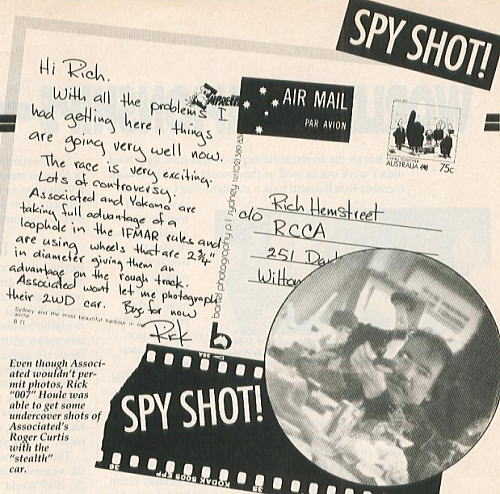 SPY SHOT!
Hi Rich.
With all the problems I
had getting here, things
are going very well now.
The race is very exciting.
Lots of controversy.
Associated and Yokomo are
taking full advantage of a
loophole in the IFMAR rules and
are using wheels that are 2¾"
in diameter giving them an
advantage on the rough track.
Associated wont let me photograph
their 2WD car. Bye for now
Rick
AIR MAIL
PAR AVION
AUSTRALIA
75c
c/o Rich Hemstreet
RCCA
251
Wilton
Sydney and the most beautiful harbour in the
world
b
Even though Associ-
ated wouldn't per-
mit photos, Rick
"007" Houle was
able to get some
undercover shots of
Associated's
Roger Curtis
with the
"stealth"
car.
SPY SHOT!
KODAK 5005 EPP
36